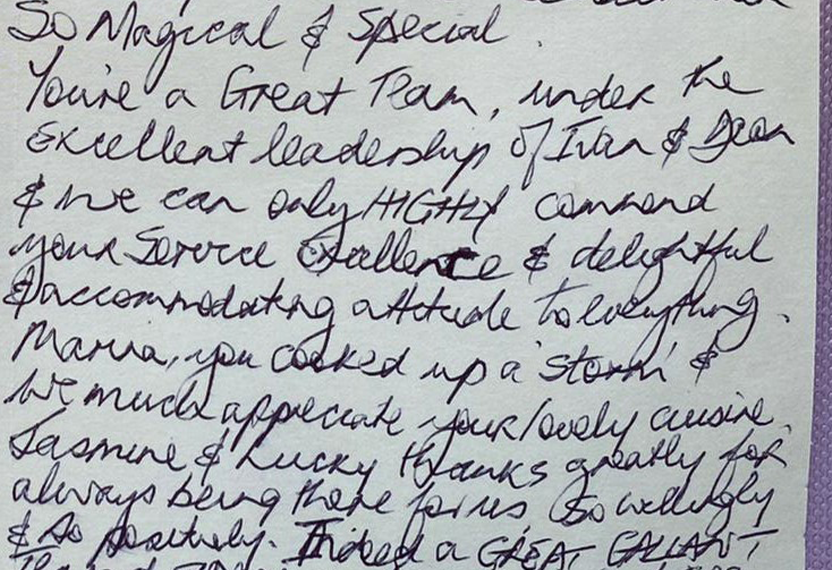 So Magical & Special.
You're a Great Team, under the
Excellent leadership of Ivan & Dean
& we can only HIGHLY commend
your Service Excellence & delightful
& accommodating attitude to everything.
Maria, you cooked up a 'storm' &
we much appreciate your lovely cuisine.
Jasmine & Lucky thanks greatly for
always being there for us so willingly
& so positively. Indeed a GREAT GALLANT